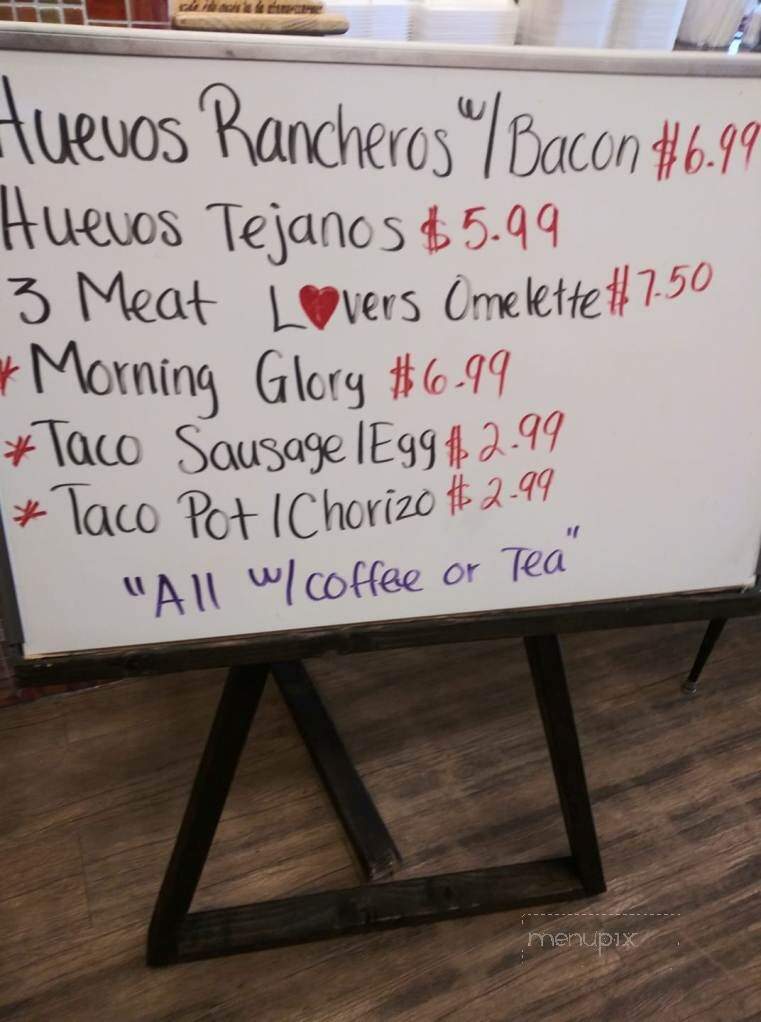 Huevos Rancheros w/Bacon $6.99
Huevos Tejanos $5.99
3 Meat L♥vers Omelette $7.50
* Morning Glory $6.99
* Taco Sausage/Egg $2.99
* Taco Pot/Chorizo $2.99
"All w/coffee or Tea"
menupix